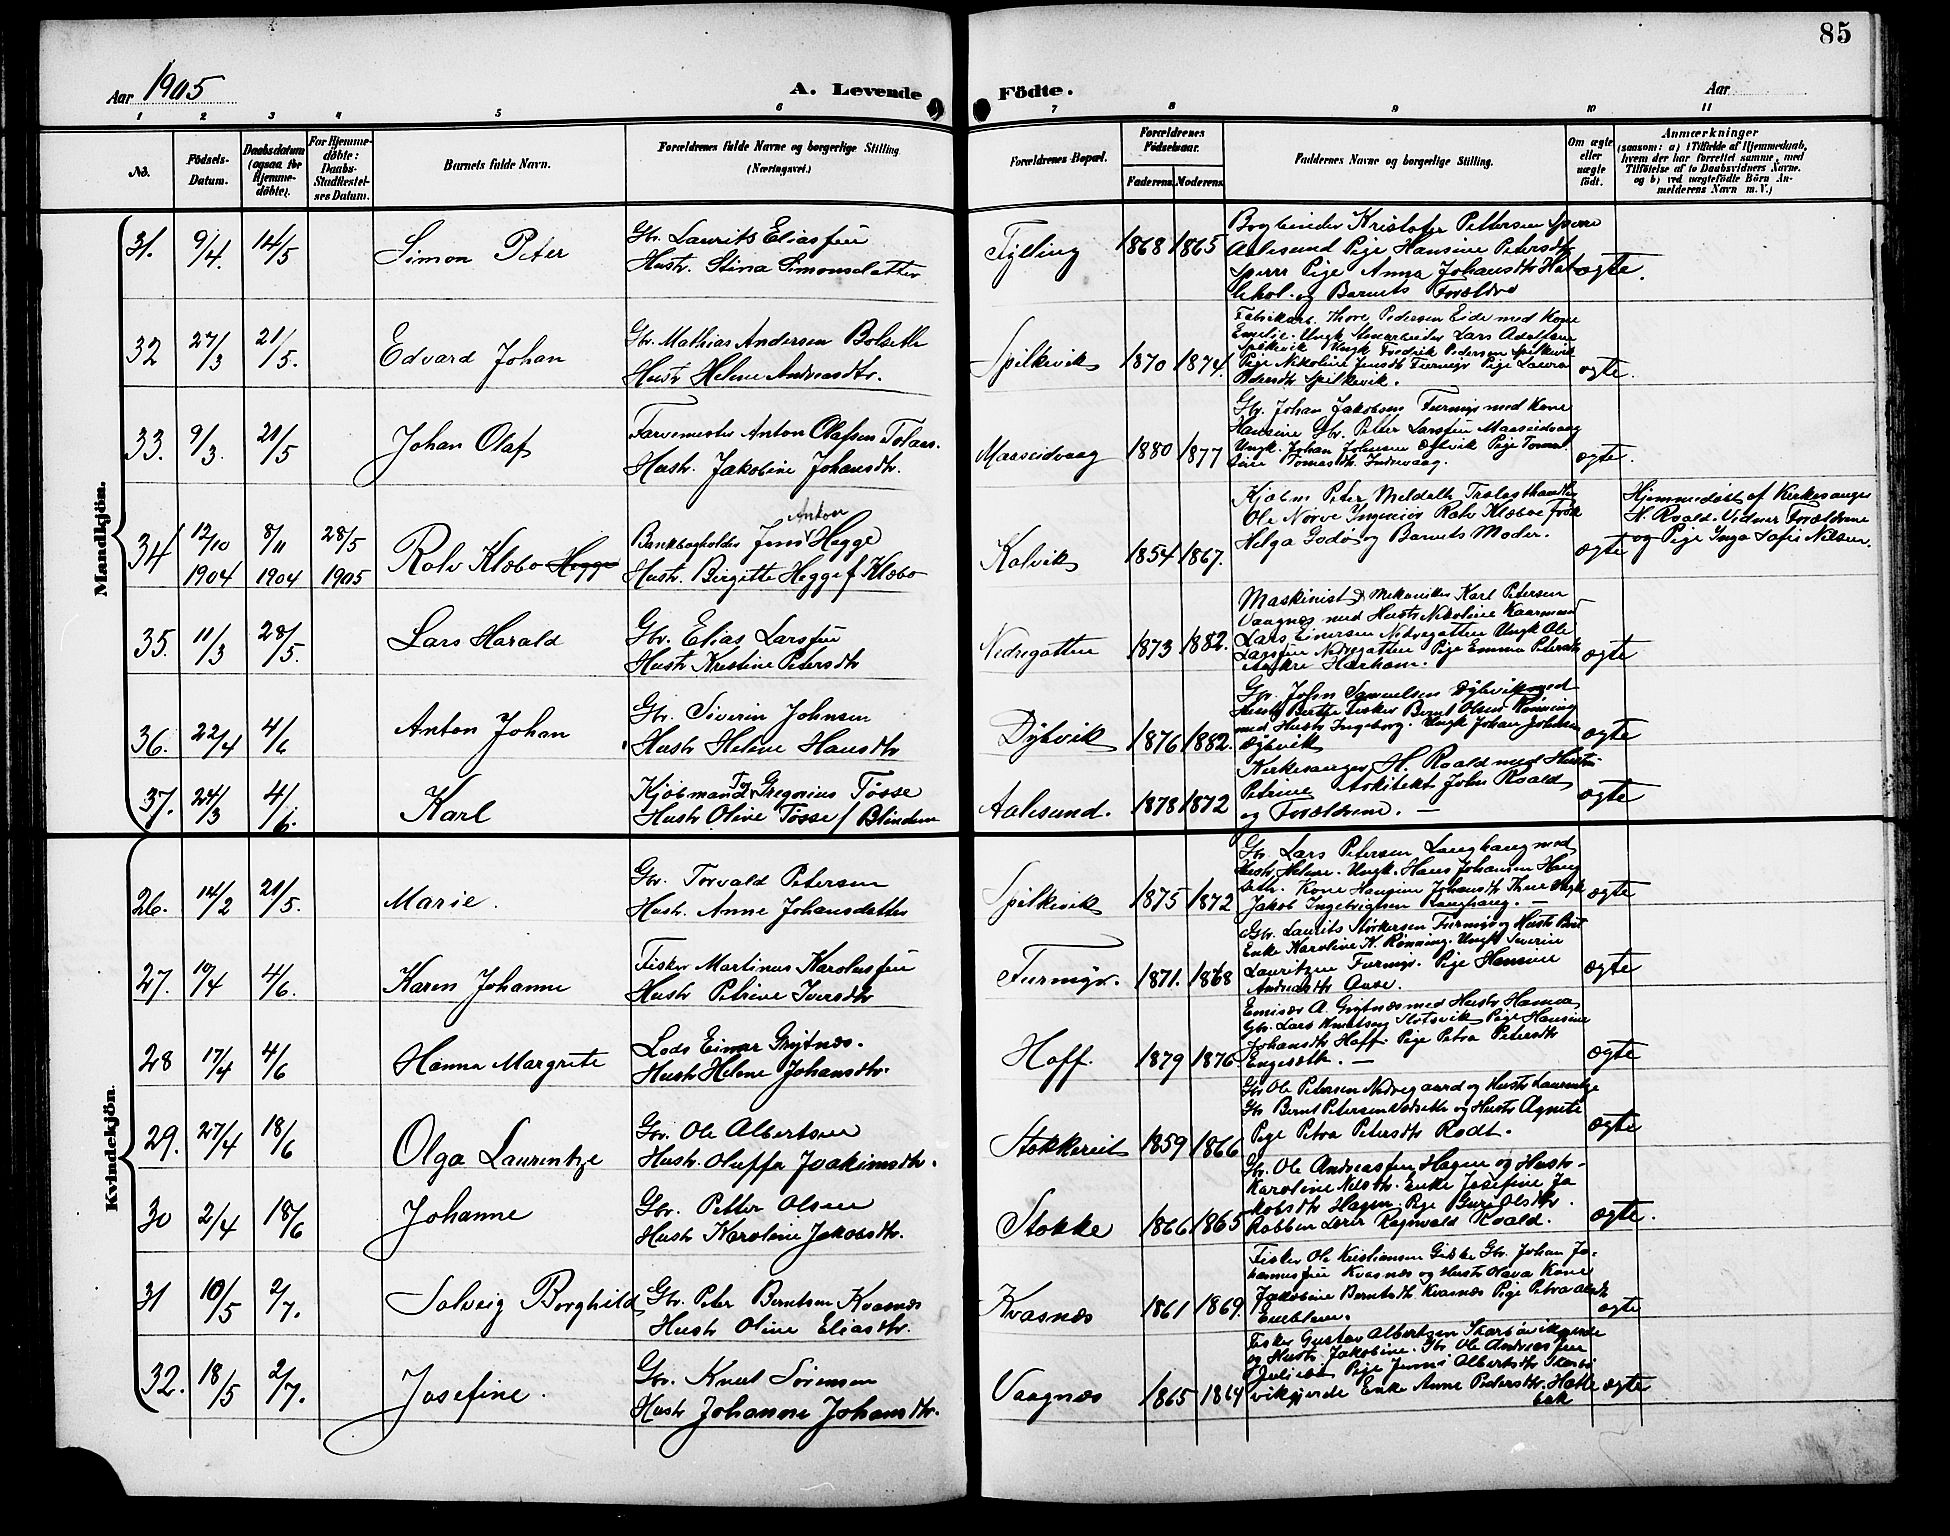 85
Aar 1905
A. Levende Födte.
Aar
1 2 3 4 5 6 7 8 9 10 11
No.
Födsels-Datum.
Daabsdatum (ogsaa for Hjemmedöbte).
For Hjemmedöbte: Daabs-Stadfestelses Datum.
Barnets fulde Navn.
Forældrenes fulde Navne og borgerlige Stilling (Næringsvei.)
Forældrenes Bopæl.
Forældrenes Födselsaar.
Faderens. Moderens.
Faddernes Navne og borgerlige Stilling.
Om ægte eller uægte födt.
Anmærkninger
(saasom: a) i Tilfælde af Hjemmedaab, hvem der har forrettet samme, med Tilföielse af to Daabsvidners Navne, og b) ved uægtefödte Börn Anmelderens Navn m. V.)
Mandkjön.
31. 9/4. 14/5 Simon Peter
Gbr. Laurits Eliassen
Hustr. Stina Simonsdatter
Fylling 1868 1865
Bogbinder Kristofer Pettersen Sperre
Aalesund Pige Hansine Petersdtr
Sperre Pige Anna Johansdtr
og Barnets Forældre
ægte.
32 27/3 21/5. Edvard Johan
Gbr. Mathias Andersen Bolseth
Hustr Helene Andreasdtr.
Spilkevik 1870 1874.
Fabrikarb. Thore Pedersen Eide med Kone
Emelie. Ungk Lars Adolfsen
Spilkevik Ungk Fredrik Pedersen Spilkevik
Pige Nikoline Jensdtr Furmyr Pige Laura
Pedersdtr Spilkevik.
ægte.
33. 9/3. 21/5 Johan Olaf
Farvemester Anton Olafsen
Hustr. Jakobine Johansdtr.
Maaseidvaag 1880 1877
Gbr. Johan Jakobsen Furmyr med Kone
Hansine Gbr. Petter Larssen Maaseidvaag
Ungk. Johan Johnsen Pige
Tomasdtr. Indrevaag.
ægte.
34 12/10 1904 8/11 1904 28/5 1905 Rolv Klæbo Hegge
Bankbogholder Jens Anton Hegge
Hustr. Birgitte Hegge f Klæbo
Kalvik 1854 1867.
Kjøbm Peter Meldalh Trælasthandler
Ole Nørve Ingeniør Rolv Klæboe frøk
Helga Godø og Barnets Moder.
ægte
Hjemmedøbt af Kirkesanger
H. Roald. Vidner Forældrene
og Pige Inga Sofie Nilsen.
35. 11/3 28/5. Lars Harald
Gbr. Elias Larssen
Hustr Kristine Petersdtr
Nedregotten 1873 1882.
Maskinist & Mekaniker Karl Petersen
Vaagnes med Hustr Nikoline
Lars Einersen Nedregotten Ungk Ole
Larssen Nedregotten Pige Emma Petersdtr
Harham.
ægte
36. 22/4 4/6 Anton Johan
Gbr. Siverin Johnsen
Hustr Helene Hansdtr
Dybvik 1876 1882.
Gbr. John Samuelsen Dybvik med
Hustr Berthe Fisker Bernt Olsen Rønning
med Hustr Ingeborg. Ungk Johan Johnsen
Dybvik
ægte
37. 24/3 4/6. Karl
Kjøbmand Gregorius Tøsse
Hustr Olive Tøsse f Blindem
Aalesund. 1878 1872
Kirkesanger H. Roald med Hustr
Petrine Arkitekt John Roald
og Forældrene. —
ægte
Kvindekjön.
26. 14/2 21/5. Marie.
Gbr. Torvald Petersen
Hustr. Anne Johansdatter
Spilkevik 1875 1872
Gbr Lars Petersen Langhaug med
Hustr Helene. Ungk. Hans Johansen
Kone Hansine Johansdtr Ungk
Jakob Ingebrigtsen Langhaug. —
ægte
27. 10/4 4/6. Karen Johanne
Fisker Martinus Karolussen
Hustr Petrine Iversdtr
Furmyr. 1871. 1868
Gbr. Laurits Størkersen Furmyr og Hustr
Enke Karoline K. Rønning. Ungk Severin
Lauritzen Furmyr. Pige Hansine
Andreasdtr Aase.
ægte
28 17/4 4/6 Hanna Margrete
Lods Einar Grytnæs.
Hustr Helene Johansdtr.
Hoff. 1879 1876
Emisær A. Grytnæs med Hustr Hanna
Gbr. Lars Knutsen Slotsvik Pige Hansine
Johansdtr Hoff. Pige Petra Petersdtr
Engesætt. —
ægte
29. 27/4 18/6 Olga Laurentze
Gbr. Ole Albertsen
Hustr. Oluffa Joakimsdtr.
Stokkereit 1859 1866
Gbr Ole Petersen Nedregaard og Hustr Laurentze
Gbr Bernt Petersen og Hustr Agnete
Pige Petra Petersdtr Rødt.
ægte
30 2/4 18/6 Johanne
Gbr. Petter Olsen
Hustr Karoline Jakobsdtr.
Stokke 1866 1865
Gbr. Ole Andreassen Hagen og Hustr
Karoline Nilsdtr. Enke Josefine Ja
kobsdtr Hagen Pige Guri Olsdtr
Rabben Lærer Ragnvald Roald.
ægte.
31 10/5 2/7. Solveig Borghild
Gbr. Peter Berntsen Kvasnæs
Hustr Oline Eliasdtr.
Kvasnæs 1861 1869.
Fisker Ole Kristiansen Giske Gbr. Johan Jo-
hannessen Kvasnæs og Hustr Olava Kone
Jakobine Berntsdtr Kvasnæs Pige Petra
Emblem.
ægte
32. 18/5 2/7. Josefine.
Gbr. Knut Sørensen
Hustr Johanne Johansdtr.
Vaagnæs 1865 1864
Fisker Gustav Albertsen Skarbøvikgjerde
og Hustr. Jakobine. Gbr Ole Andreassen
Pige Jenni Albertsdtr Skarbø
vikgjerde Enke Anne Pedersdtr. Hatle
bak
ægte